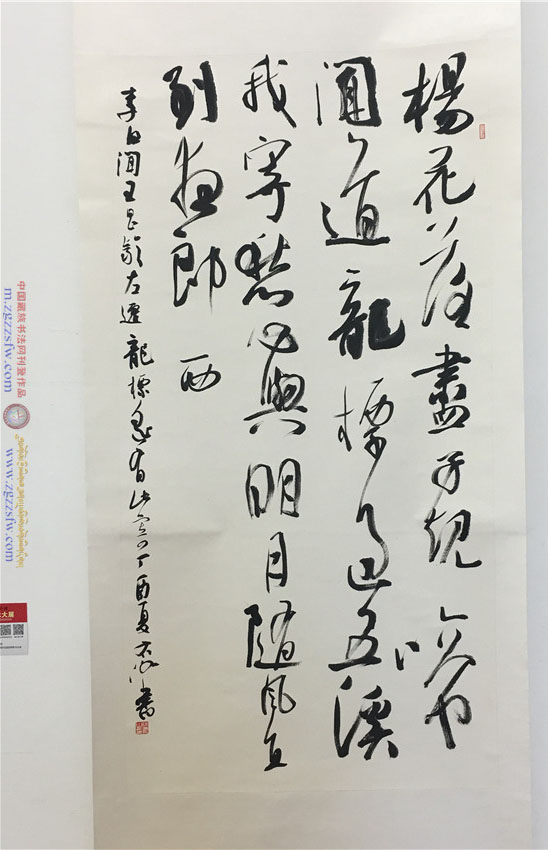 楊花落盡子規啼
聞道龍標過五溪
我寄愁心與明月隨風直
到夜郎西
李白聞王昌齡左遷龍標遙有此寄丁酉夏書
中国藏族书法网刊登作品
m.zgzzsfw.com
www.zgzzsfw.com
大展